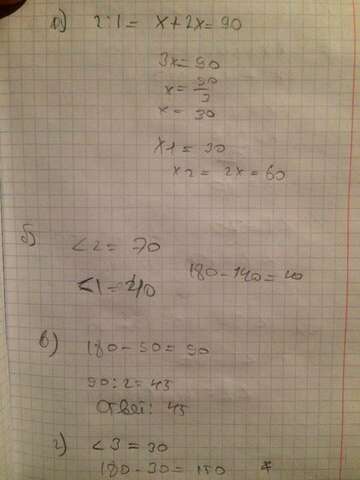 а) 2:1 = x+2x=90
3x=90
x= 90/3
x= 30
x1 = 30
x2 = 2x=60
б) <2= 70
180-140=40
<1=40
в) 180-90=90
90:2=45
Ответ: 45
г) <3=30
180-30=150